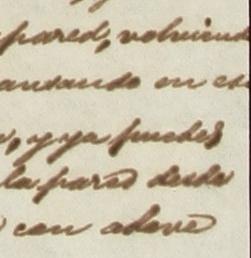 pared, volviendo
ansando en es
, y ya puedes
la pared desde
con adove